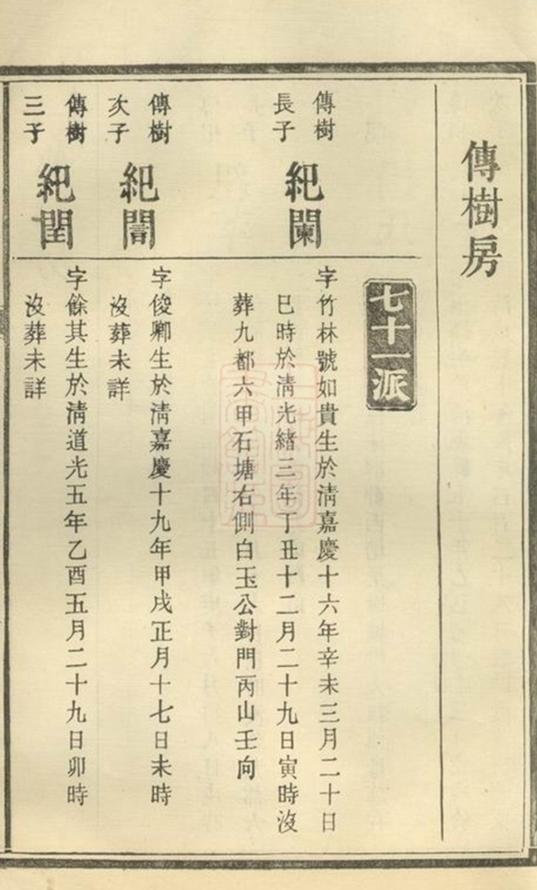 傳樹房
七十一派
傳樹
長子
紀闌
字竹林號如貴生於清嘉慶十六年辛未三月二十日
巳時於清光緒三年丁丑十二月二十九日寅時沒
葬九都六甲石塘右側白玉公對門丙山壬向
傳樹
次子
字俊卿生於清嘉慶十九年甲戌正月十七日未時
沒葬未詳
傳樹
三子
紀閏
字餘其生於清道光五年乙酉五月二十九日卯時
沒葬未詳